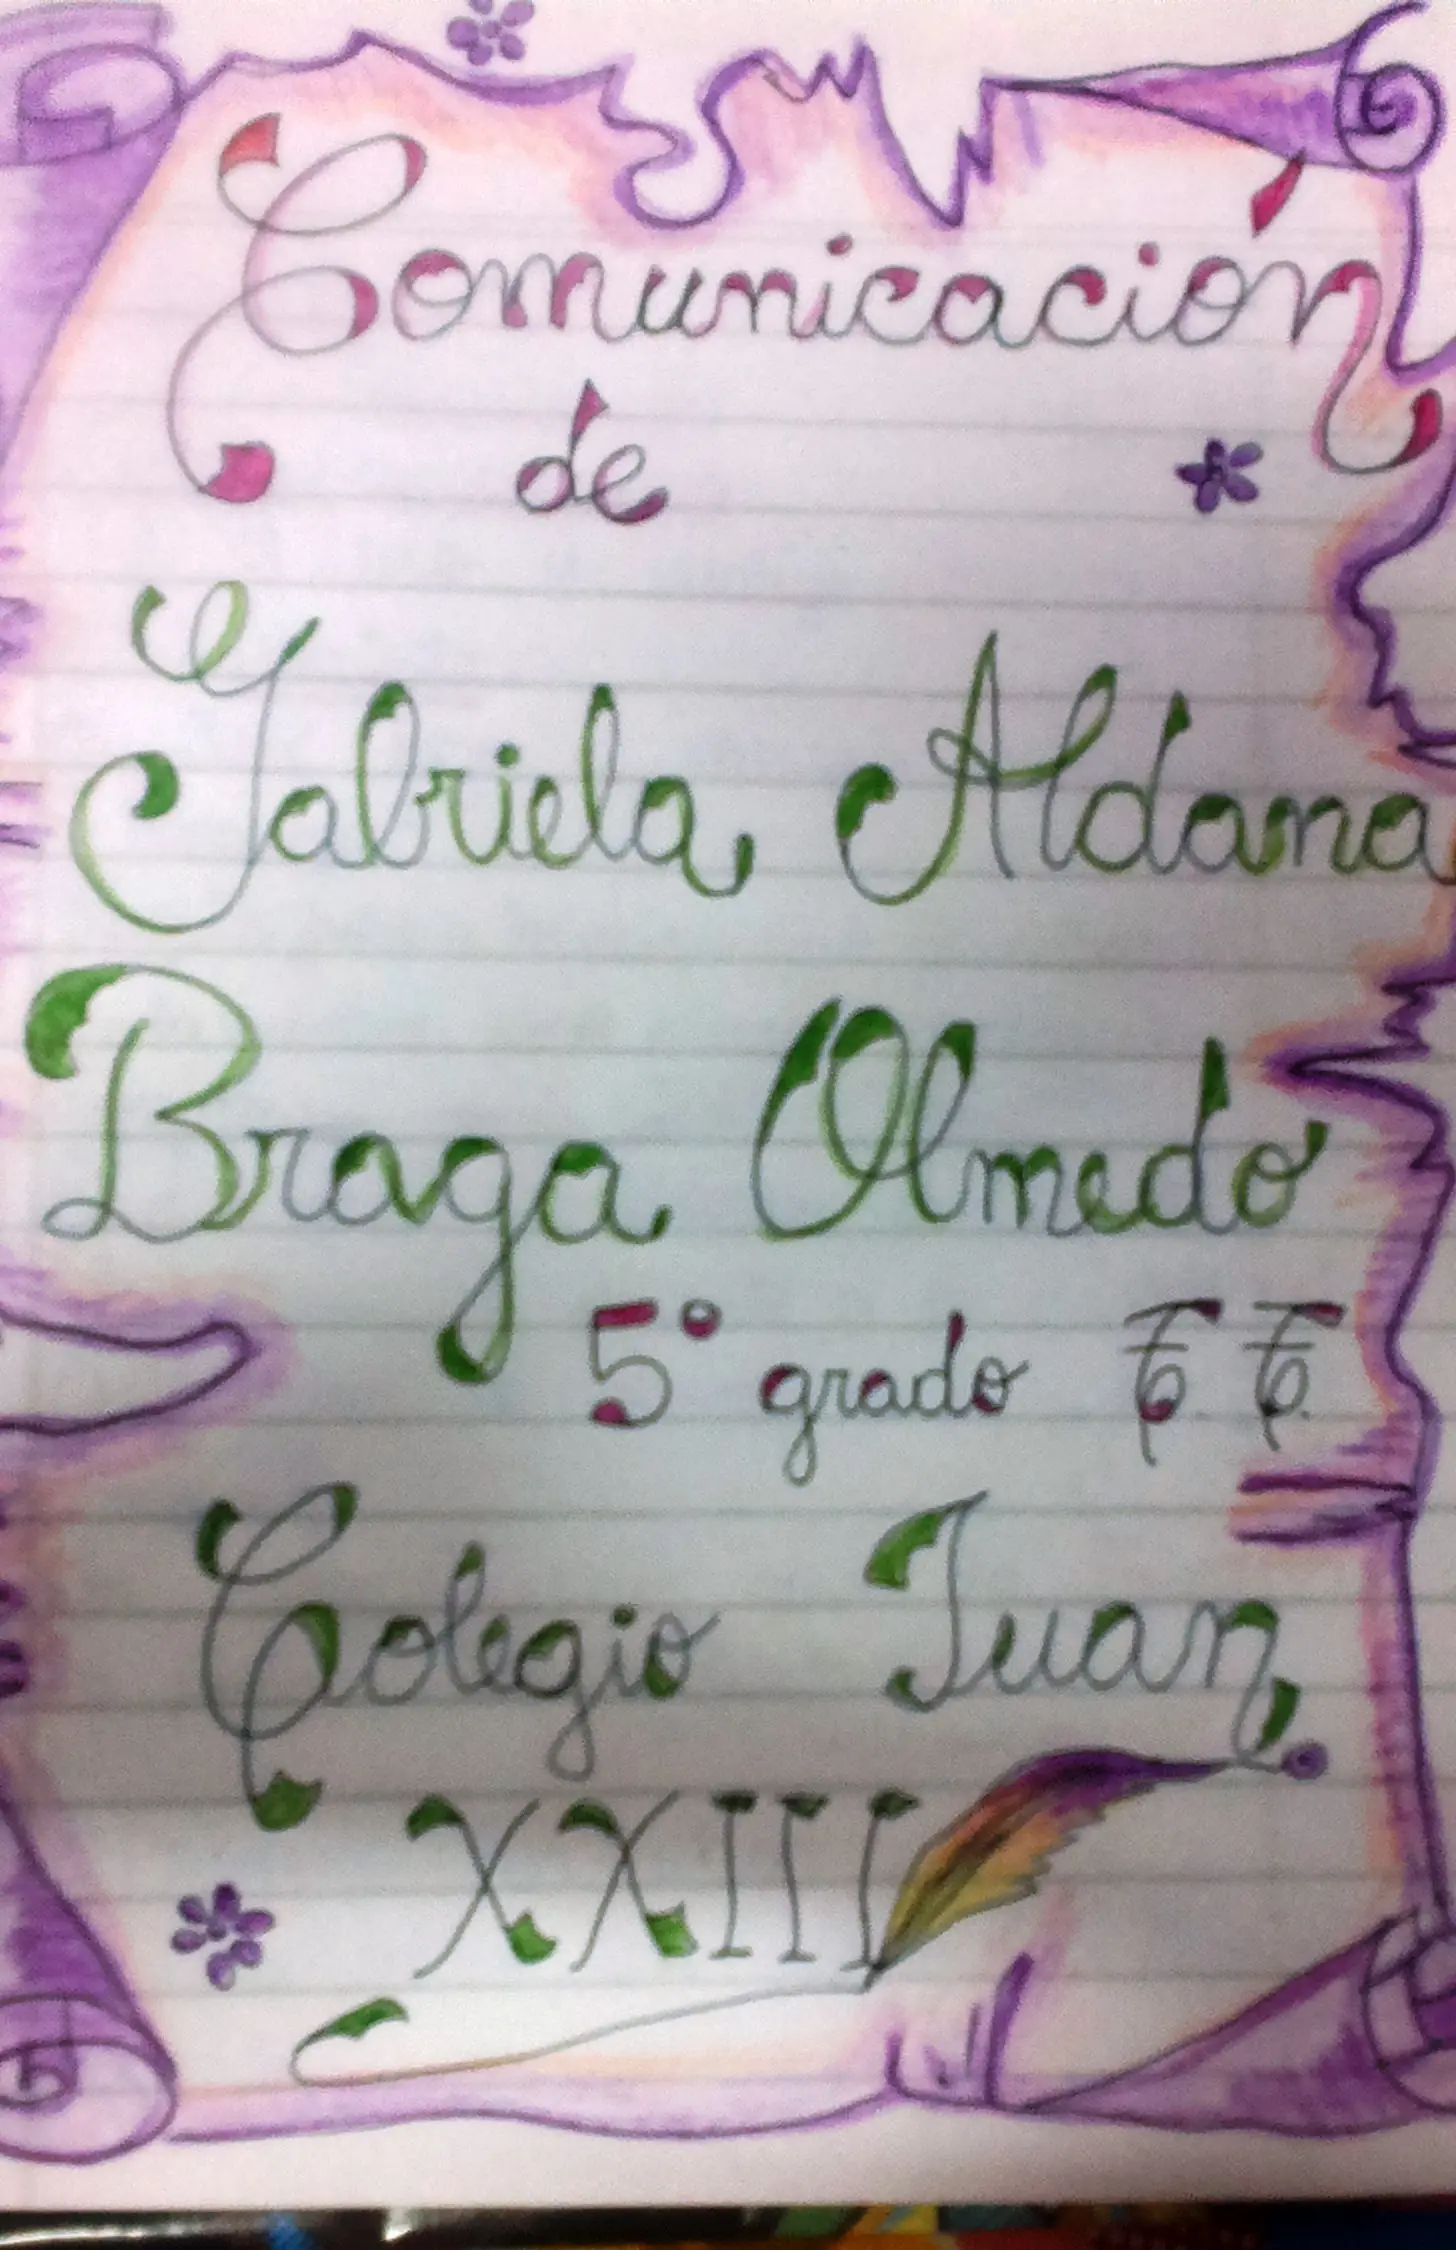 Comunicación
de
Gabriela Aldana
Braga Olmedo
5° grado
Colegio Juan
XXIII